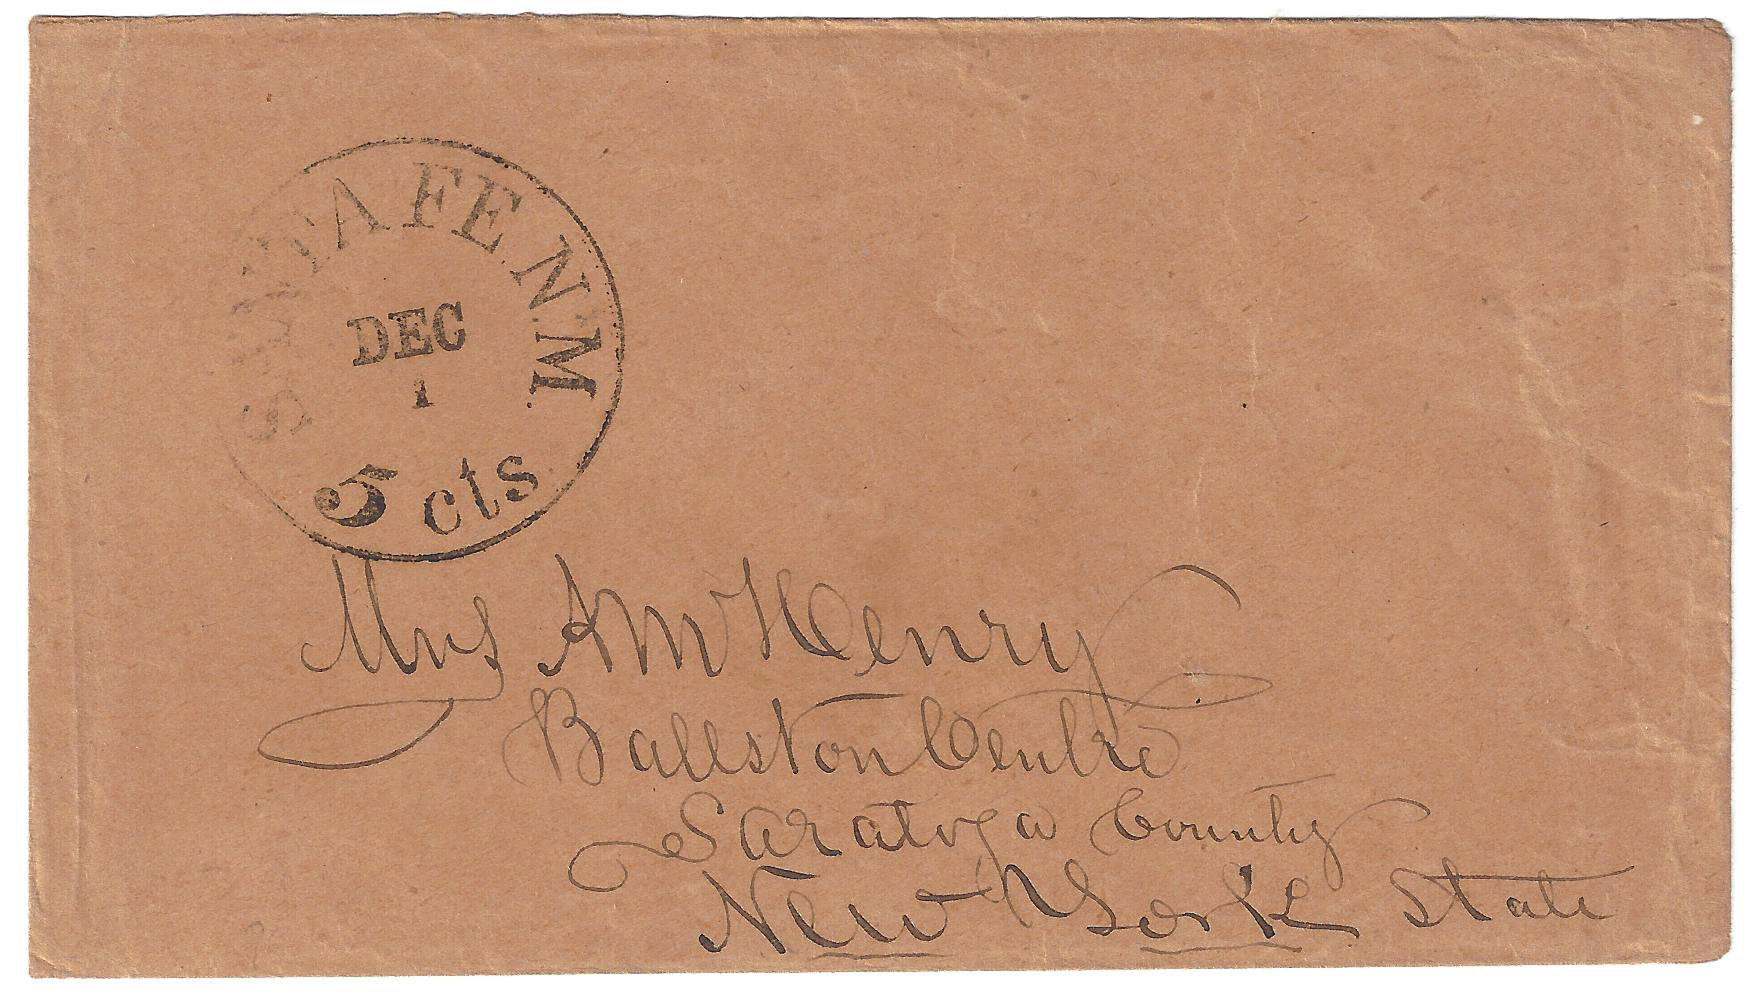 SANTA FE N.M.
DEC
1
5 cts
Mrs A McHenry
Ballston Centre
Saratoga County
New York State